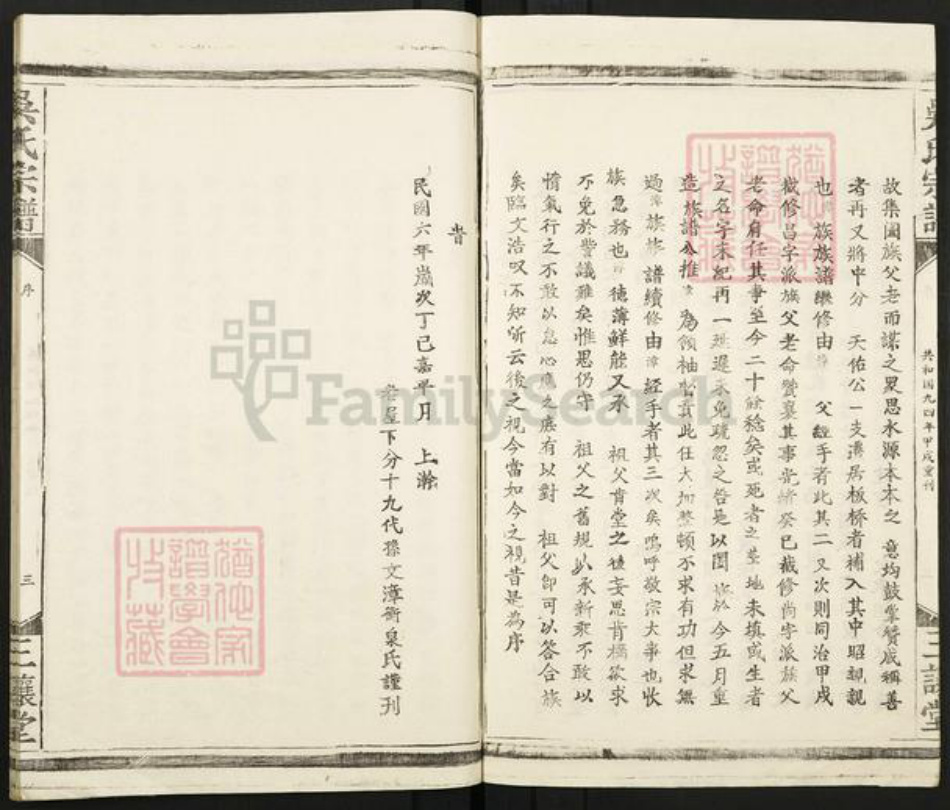 吳氏宗譜
共和国九四年甲戌重刊
三讓堂
故集闔族父老而謀之眾思水源本本之 意均鼓掌贊成稱善
者再又將中分 天佑公一支濞居板桥者補入其中昭親親
也 族族譜継修由 父經手者此其二又次則同治甲戌
嵗修昌字派族父老命贊襄其事光緒癸巳嵗修尚字派族父
老命身任其事至今二十餘稔矣或死者之墓地未填或生者
之名字未紀再一延遲未免疏忽之咎是以闔 族於今五月重
造族譜公推 為領袖 責此任大加整頓不求有功但求無
過 族族 譜續修由 經手者其三次矣嗚呼敬宗大事也收
族急務也 徳薄鮮能又承 祖父肯堂之後妄思肯構欲求
不免於訾議難矣惟思仍守 祖父之舊規以承新乘不敢以
惰氣行之不敢以怠心應之庶有以對 祖父即可以答合族
矣臨文浩叹不知所云後之視今當如今之視昔是為序
旹
民國六年嵗次丁巳嘉平月 上澣
老屋下分十九代孫文漳衡泉氏謹刊
吳氏宗譜
序
三
三讓堂
FamilySearch